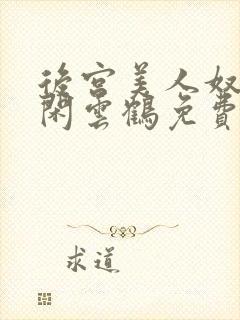 後宮美人奴
閑雲鶴免費
求道